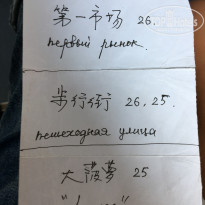 第一市场 26,
первый рынок.
步行街 26, 25.
пешеходная улица
大菠萝 25